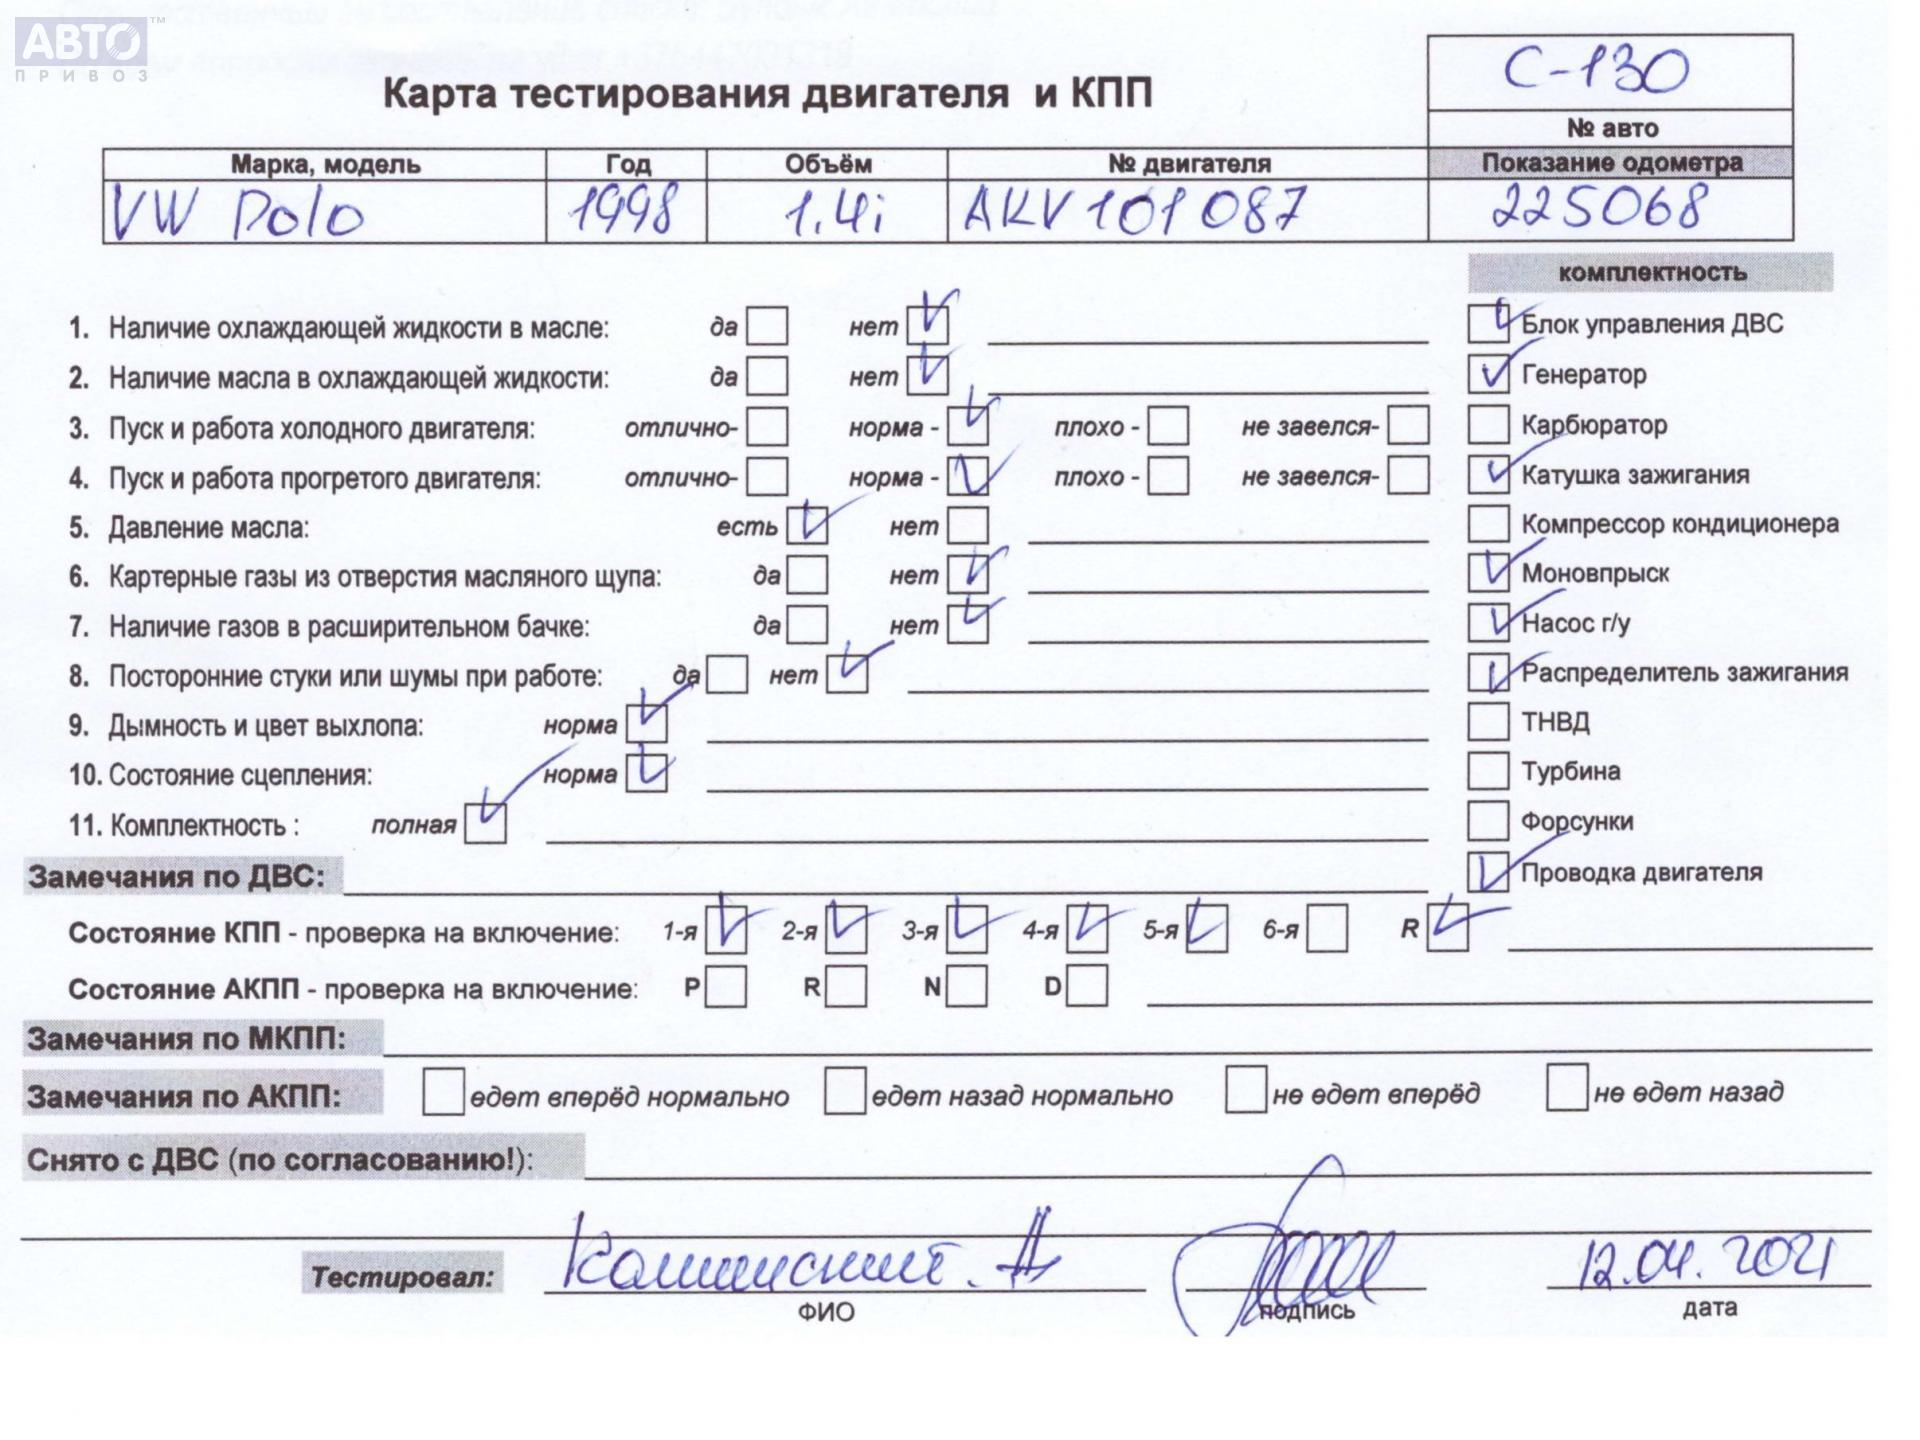 АВТО™
ПРИВОЗ
Карта тестирования двигателя и КПП
C-130
№ авто
Марка, модель Год Объём № двигателя Показание одометра
VW Polo 1998 1.4i AKV101087 225068
комплектность
1. Наличие охлаждающей жидкости в масле: да нет
Блок управления ДВС
2. Наличие масла в охлаждающей жидкости: да нет
Генератор
3. Пуск и работа холодного двигателя: отлично- норма - плохо - не завелся-
Карбюратор
4. Пуск и работа прогретого двигателя: отлично- норма - плохо - не завелся-
Катушка зажигания
5. Давление масла: есть нет
Компрессор кондиционера
6. Картерные газы из отверстия масляного щупа: да нет
Моновпрыск
7. Наличие газов в расширительном бачке: да нет
Насос г/у
8. Посторонние стуки или шумы при работе: да нет
Распределитель зажигания
9. Дымность и цвет выхлопа: норма
ТНВД
10. Состояние сцепления: норма
Турбина
11. Комплектность : полная
Форсунки
Замечания по ДВС:
Проводка двигателя
Состояние КПП - проверка на включение: 1-я 2-я 3-я 4-я 5-я 6-я R
Состояние АКПП - проверка на включение: P R N D
Замечания по МКПП:
Замечания по АКПП: едет вперёд нормально едет назад нормально не едет вперёд не едет назад
Снято с ДВС (по согласованию!):
Тестировал: А 12.04.2021
ФИО подпись дата